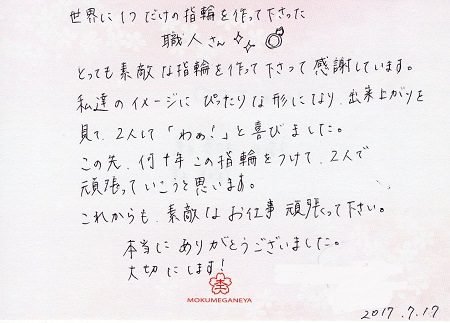 世界に1つだけの指輪を作って下さった
職人さん
とっても素敵な指輪を作って下さって感謝しています。
私達のイメージにぴったりな形になり、出来上がりを
見て、2人して「わぁ!」と喜びました。
この先、何十年この指輪をつけて、2人で
頑張っていこうと思います。
これからも、素敵なお仕事頑張って下さい。
本当にありがとうございました。
大切にします!
MOKUMEGANEYA
2017.7.17